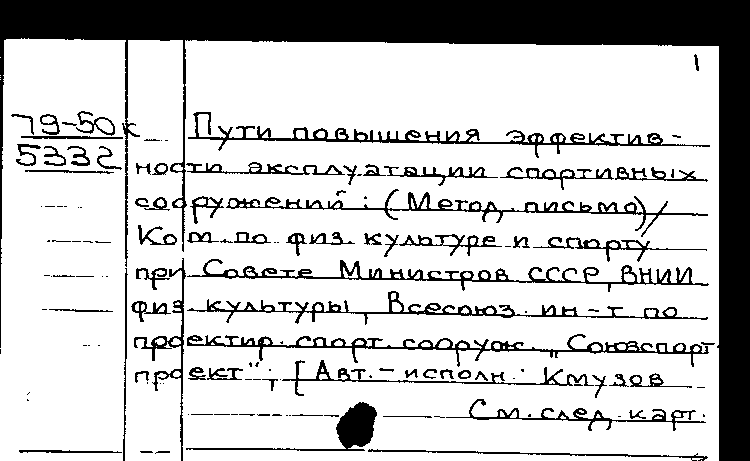 1
79-50к Пути повышения эффектив-
5332 ности эксплуатации спортивных
сооружений : (Метод. письмо) /
Ком. по физ. культуре и спорту
при Совете Министров СССР, ВНИИ
физ. культуры, Всесоюз. ин-т по
проектир. спорт. сооруж. „Союзспорт-
проект"; [Авт.-исполн.: Кмузов
См. след. карт.